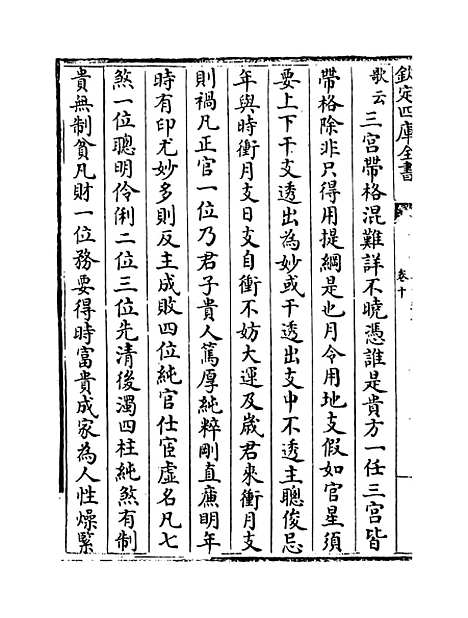 欽定四庫全書
卷十
歌云三宫帶格混難詳不曉憑誰是貴方一任三宫皆
帶格除非只得用提綱是也月令用地支假如官星須
要上下干支透出為妙或干透出支中不透主聰俊忌
年與時衝月支日支自衝不妨大運及歲君來衝月支
則禍凡正官一位乃君子貴人篤厚純粹剛直亷明年
時有印尤妙多則反主成敗四位純官仕宦虛名凡七
煞一位聰明伶俐二位三位先清後濁四柱純煞有制
貴無制貧凡財一位務要得時富貴成家為人性燥緊